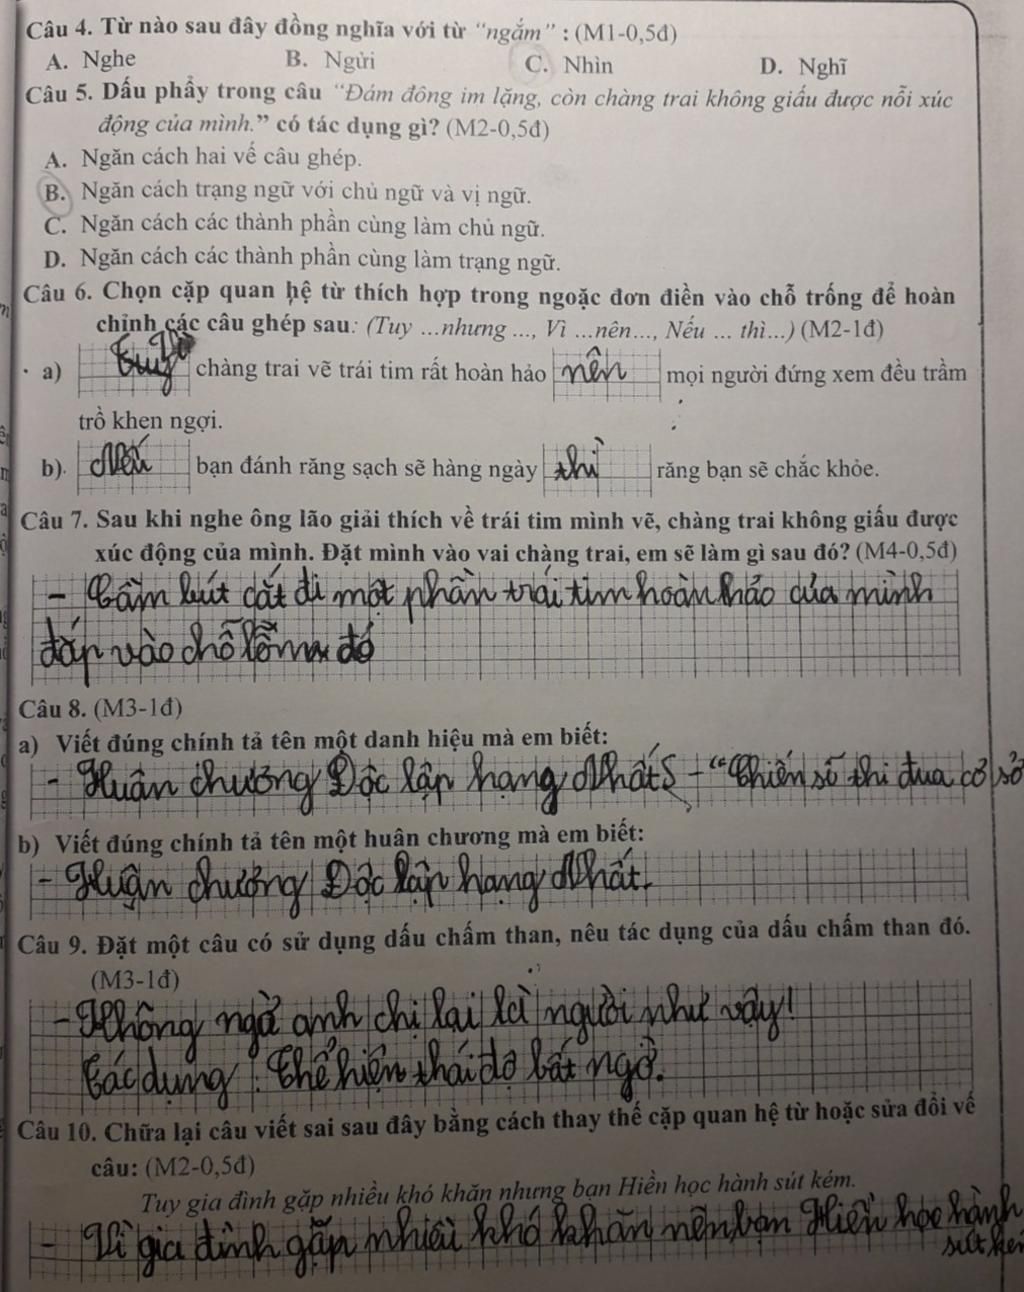 Câu 4. Từ nào sau đây đồng nghĩa với từ “ngắm” : (M1-0,5đ)
A. Nghe B. Ngửi C. Nhìn D. Nghĩ
Câu 5. Dấu phẩy trong câu “Đám đông im lặng, còn chàng trai không giấu được nỗi xúc
động của mình.” có tác dụng gì? (M2-0,5đ)
A. Ngăn cách hai vế câu ghép.
B. Ngăn cách trạng ngữ với chủ ngữ và vị ngữ.
C. Ngăn cách các thành phần cùng làm chủ ngữ.
D. Ngăn cách các thành phần cùng làm trạng ngữ.
Câu 6. Chọn cặp quan hệ từ thích hợp trong ngoặc đơn điền vào chỗ trống để hoàn
chỉnh các câu ghép sau: (Tuy ...nhưng ..., Vì ...nên..., Nếu ... thì...) (M2-1đ)
a) Tuy Vì chàng trai vẽ trái tim rất hoàn hảo nên mọi người đứng xem đều trầm
trồ khen ngợi.
b). Nếu bạn đánh răng sạch sẽ hàng ngày thì răng bạn sẽ chắc khỏe.
Câu 7. Sau khi nghe ông lão giải thích về trái tim mình vẽ, chàng trai không giấu được
xúc động của mình. Đặt mình vào vai chàng trai, em sẽ làm gì sau đó? (M4-0,5đ)
- Cầm bút cắt đi một phần trái tim hoàn hảo của mình
đắp vào chỗ lõm đó
Câu 8. (M3-1đ)
a) Viết đúng chính tả tên một danh hiệu mà em biết:
- Huân chương Độc lập hạng Nhất - “Chiến sĩ thi đua cơ sở
b) Viết đúng chính tả tên một huân chương mà em biết:
- Huận chương Độc lập hạng Nhất.
Câu 9. Đặt một câu có sử dụng dấu chấm than, nêu tác dụng của dấu chấm than đó.
(M3-1đ)
- Không ngờ anh chị lại là người như vậy!
Tác dụng : Thể hiện thái độ bất ngờ.
Câu 10. Chữa lại câu viết sai sau đây bằng cách thay thế cặp quan hệ từ hoặc sửa đổi vế
câu: (M2-0,5đ)
Tuy gia đình gặp nhiều khó khăn nhưng bạn Hiền học hành sút kém.
- Vì gia đình gặp nhiều khó khăn nên bạn Hiền học hành
sút kém